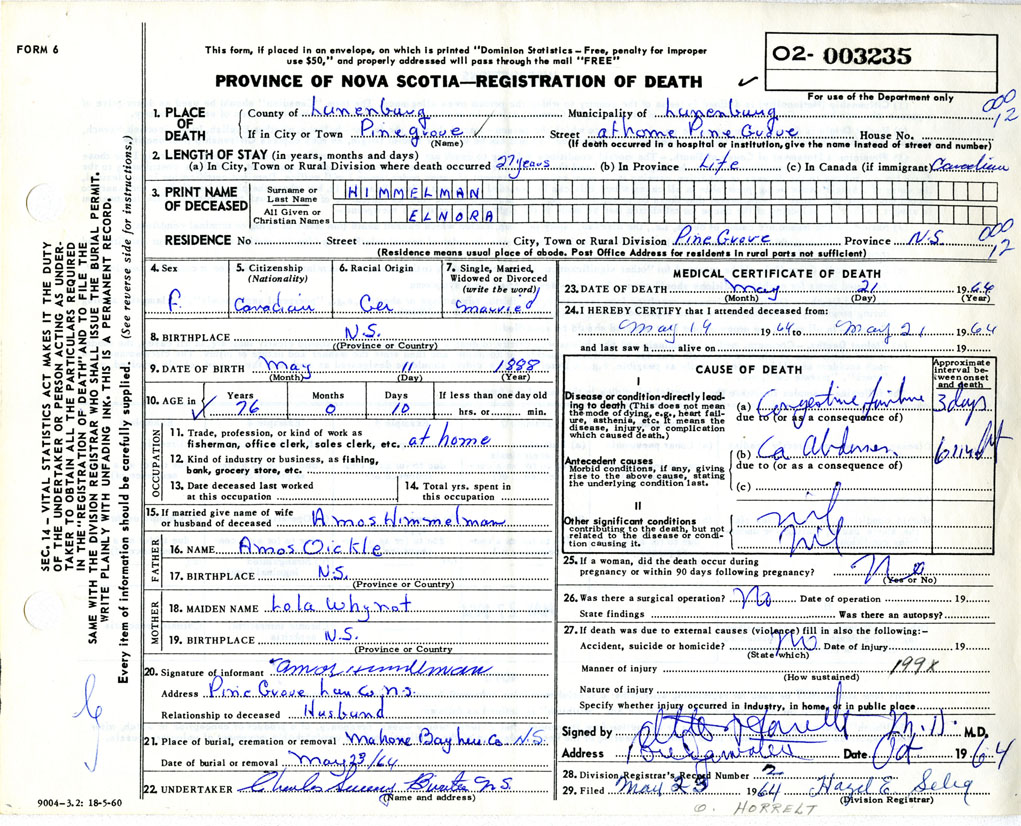 FORM 6
This form, if placed in an envelope, on which is printed "Dominion Statistics – Free, penalty for improper
use $50," and properly addressed will pass through the mail "FREE"
PROVINCE OF NOVA SCOTIA—REGISTRATION OF DEATH
02- 003235
For use of the Department only
000
12
1. PLACE OF DEATH
County of Lunenburg Municipality of Lunenburg
If in City or Town Pinegrove Street at home Pine Grove House No.
(Name) (If death occurred in a hospital or institution, give the name instead of street and number)
2. LENGTH OF STAY (in years, months and days)
(a) In City, Town or Rural Division where death occurred 27 years (b) In Province Life (c) In Canada (if immigrant) Canadian
3. PRINT NAME OF DECEASED
Surname or Last Name HIMMELMAN
All Given or Christian Names ELNORA
RESIDENCE No Street City, Town or Rural Division Pine Grove Province N.S.
000
12
(Residence means usual place of abode. Post Office Address for residents in rural parts not sufficient)
4. Sex F.
5. Citizenship (Nationality) Canadian
6. Racial Origin Ger
7. Single, Married, Widowed or Divorced (write the word) married
8. BIRTHPLACE N.S.
(Province or Country)
9. DATE OF BIRTH May 11 1888
(Month) (Day) (Year)
10. AGE in Years 76 Months 0 Days 10 If less than one day old hrs. or min.
OCCUPATION
11. Trade, profession, or kind of work as
fisherman, office clerk, sales clerk, etc. at home
12. Kind of industry or business, as fishing,
bank, grocery store, etc.
13. Date deceased last worked at this occupation
14. Total yrs. spent in this occupation
15. If married give name of wife
or husband of deceased Amos Himmelman
FATHER
16. NAME Amos Oickle
17. BIRTHPLACE N.S.
(Province or Country)
MOTHER
18. MAIDEN NAME Lola Whynot
19. BIRTHPLACE N.S.
(Province or Country)
20. Signature of informant Amos Himmelman
Address Pine Grove Lun Co N.S.
Relationship to deceased Husband
21. Place of burial, cremation or removal Mahone Bay Lun. Co N.S.
Date of burial or removal May 23/64
22. UNDERTAKER Charles N.S.
(Name and address)
9004—3.2: 18-5-60
MEDICAL CERTIFICATE OF DEATH
23. DATE OF DEATH May 21 1964
(Month) (Day) (Year)
24. I HEREBY CERTIFY that I attended deceased from:
May 19 1964 to May 21 1964
and last saw h alive on 19
CAUSE OF DEATH
Approximate interval between onset and death
I
Disease or condition directly leading to death (This does not mean the mode of dying, e.g., heart failure, asthenia, etc. It means the disease, injury, or complication which caused death.)
(a) Congestive failure 3 days
due to (or as a consequence of)
Antecedent causes
Morbid conditions, if any, giving rise to the above cause, stating the underlying condition last.
(b) Ca Abdomen
due to (or as a consequence of)
(c)
II
Other significant conditions
contributing to the death, but not related to the disease or condition causing it.
nil
nil
25. If a woman, did the death occur during
pregnancy or within 90 days following pregnancy? No
(Yes or No)
26. Was there a surgical operation? No Date of operation 19
State findings Was there an autopsy?
27. If death was due to external causes (violence) fill in also the following:–
Accident, suicide or homicide? No Date of injury 19
(State which)
Manner of injury 199X
(How sustained)
Nature of injury
Specify whether injury occurred in industry, in home, or in public place
Signed by M.D. M.D.
Address Bridgewater Date Oct 1964
28. Division Registrar's Record Number 2
29. Filed May 23 1964 Hazel E. Selig
(Division Registrar)
G. HORRELT
SEC. 14 – VITAL STATISTICS ACT MAKES IT THE DUTY
OF THE UNDERTAKER OR PERSON ACTING AS UNDER-
TAKER TO OBTAIN ALL THE PARTICULARS REQUIRED
IN THE "REGISTRATION OF DEATH" AND TO FILE THE
SAME WITH THE DIVISION REGISTRAR WHO SHALL ISSUE THE BURIAL PERMIT.
WRITE PLAINLY WITH UNFADING INK. THIS IS A PERMANENT RECORD.
Every item of information should be carefully supplied. (See reverse side for instructions.)